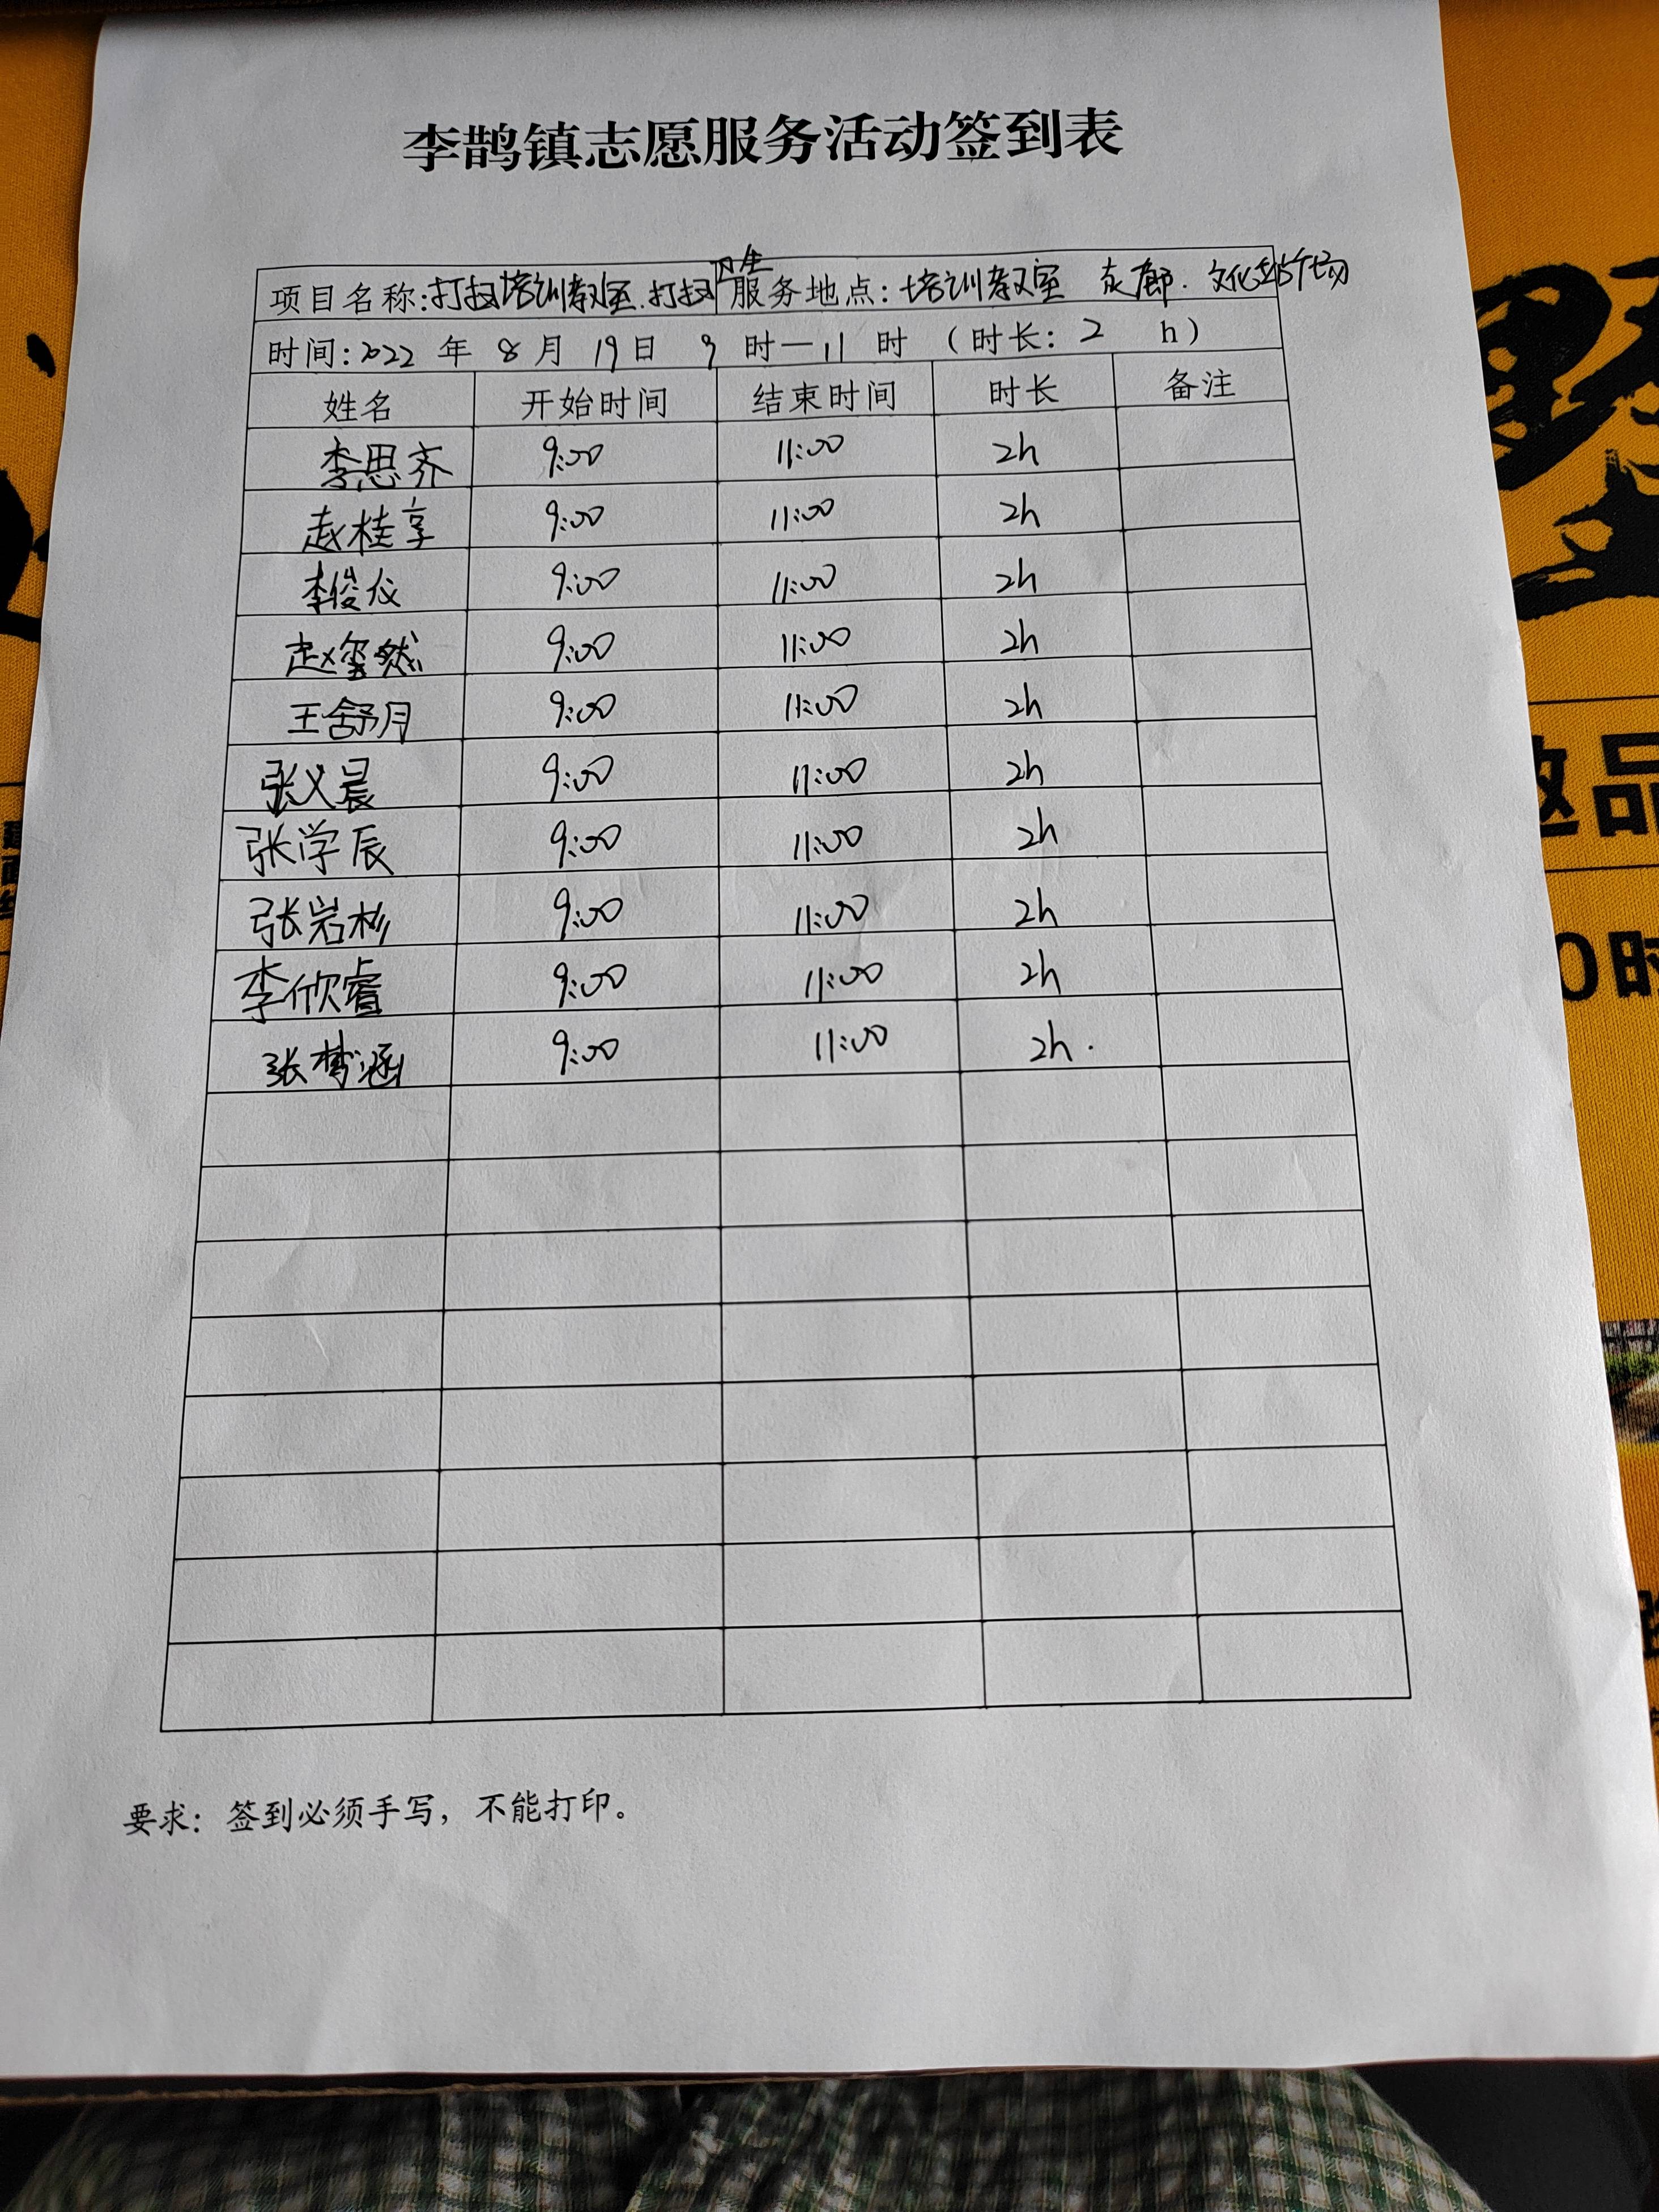 李鹊镇志愿服务活动签到表
项目名称:打扫培训教室.打扫卫生 服务地点:培训教室 走廊. 文化站广场
时间:2022 年 8 月 19日 9 时—11 时 (时长: 2 h)
姓名 开始时间 结束时间 时长 备注
李思齐 9:00 11:00 2h
赵桂享 9:00 11:00 2h
李俊仪 9:00 11:00 2h
赵玺然 9:00 11:00 2h
王舒月 9:00 11:00 2h
张义晨 9:00 11:00 2h
张学辰 9:00 11:00 2h
张岩杉 9:00 11:00 2h
李欣睿 9:00 11:00 2h
张梦涵 9:00 11:00 2h.
要求: 签到必须手写, 不能打印。
品
0时